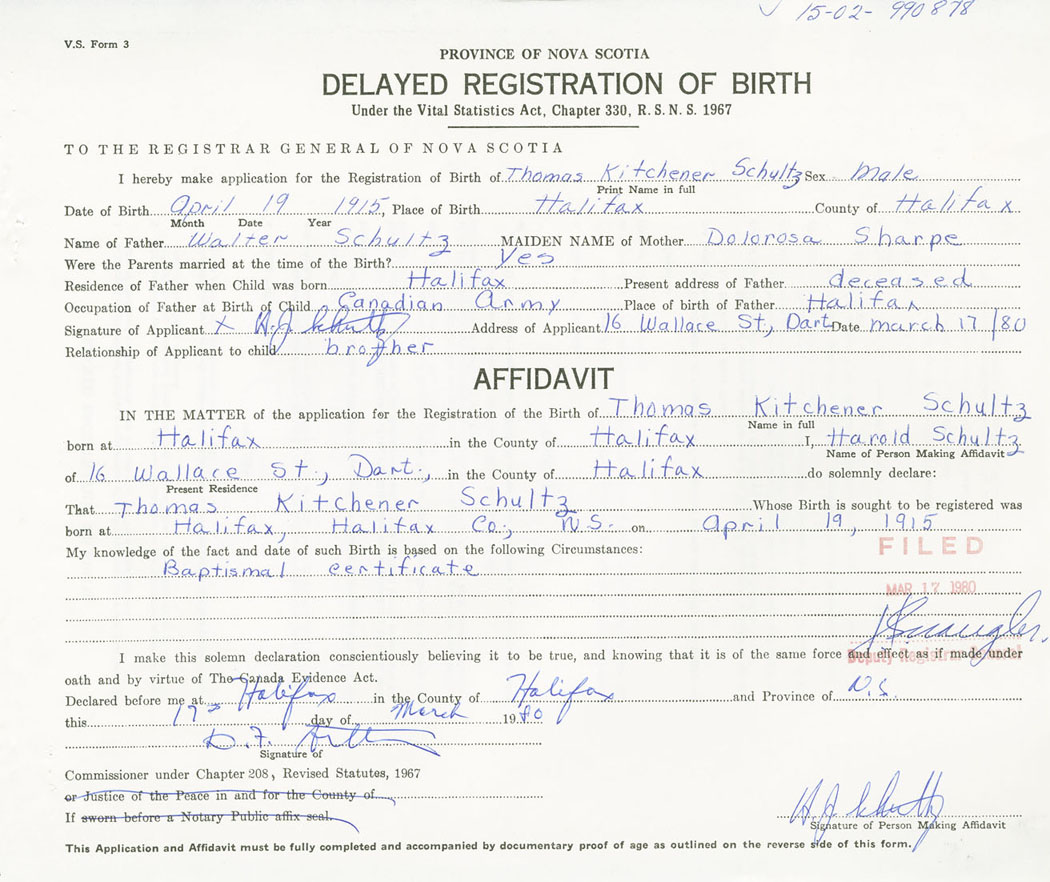 15-02- 990878
V.S. Form 3
PROVINCE OF NOVA SCOTIA
DELAYED REGISTRATION OF BIRTH
Under the Vital Statistics Act, Chapter 330, R.S.N.S. 1967
TO THE REGISTRAR GENERAL OF NOVA SCOTIA
I hereby make application for the Registration of Birth of Thomas Kitchener Schultz Sex Male
Print Name in full
Date of Birth April 19 1915, Place of Birth Halifax County of Halifax
Month Date Year
Name of Father Walter Schultz MAIDEN NAME of Mother Dolorosa Sharpe
Were the Parents married at the time of the Birth? Yes
Residence of Father when Child was born Halifax Present address of Father deceased
Occupation of Father at Birth of Child Canadian Army Place of birth of Father Halifax
Signature of Applicant X H.J Schultz Address of Applicant 16 Wallace St., Dart Date march 17/80
Relationship of Applicant to child brother
AFFIDAVIT
IN THE MATTER of the application for the Registration of the Birth of Thomas Kitchener Schultz
Name in full
born at Halifax in the County of Halifax I, Harold Schultz
Name of Person Making Affidavit
of 16 Wallace St., Dart., in the County of Halifax do solemnly declare:
Present Residence
That Thomas Kitchener Schultz Whose Birth is sought to be registered was
born at Halifax, Halifax Co., N.S. on April 19, 1915
My knowledge of the fact and date of such Birth is based on the following Circumstances:
FILED
Baptismal certificate
MAR 17 1980
I make this solemn declaration conscientiously believing it to be true, and knowing that it is of the same force and effect as if made under
Deputy Registrar General
oath and by virtue of The Canada Evidence Act.
Declared before me at Halifax in the County of Halifax and Province of N.S.
this 17 day of March 1980
D.F.
Signature of
Commissioner under Chapter 208, Revised Statutes, 1967
or Justice of the Peace in and for the County of
If sworn before a Notary Public affix seal.
H.J Schultz
Signature of Person Making Affidavit
This Application and Affidavit must be fully completed and accompanied by documentary proof of age as outlined on the reverse side of this form.